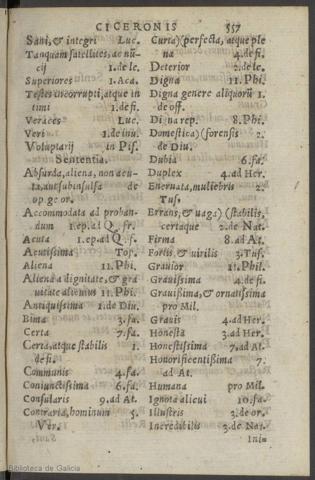 CICERONIS 557
Sani, & integri Luc.
Tanquam satellites, ac nũ-
cij 1. de le.
Superiores 1. Aca.
Testes incorrupti, atque in
timi 1. de fi.
Veraces Luc.
Veri 1. de inu.
Voluptarij in Pis.
Sententia.
Absurda, aliena, non acu-
ta, aut subinsulsa de
op. ge or.
Accommodata ad proban-
dum 1. ep. ad Q. fr.
Acuta 1. ep. ad Q. f.
Acutissima Top.
Aliena 11. Phi.
Aliena a dignitate, & gra
uitate alicuius 11. Phi.
Antiquissima 1. de Diu.
Bima 3. fa.
Certa 7. fa.
Certa, atque stabilis 1.
de fi.
Communis 4. fa.
Coniunctissima 6. fa.
Consularis 9. ad At.
Contraria, hominum 5.
Ver.
Curta) (perfecta, atque ple
na 4. de fi.
Deterior 2. de le.
Digna 11. Phi.
Digna genere aliquorũ 1.
de off.
Digna rep. 8. Phi.
Domestica) (forensis 2.
de Diu.
Dubia 6. fa.
Duplex 4. ad Her.
Eneruata, muliebris 2.
Tus.
Errans, & uaga) (stabilis,
certaque 2. de Nat.
Firma 8. ad At.
Fortis, & uirilis 3. Tus.
Grauior 11. Phil.
Grauissima 4. de fi.
Grauissima, & ornatissima
pro Mil.
Grauis 4. ad Her.
Honesta 3. ad Her.
Honestissima 7. ad At.
Honorificentissima 7.
ad At.
Humana pro Mil.
Ignota alicui 10. fa.
Illustris 3. de or.
Incredibilis 3. de Nat.
Iniu
Biblioteca de Galicia